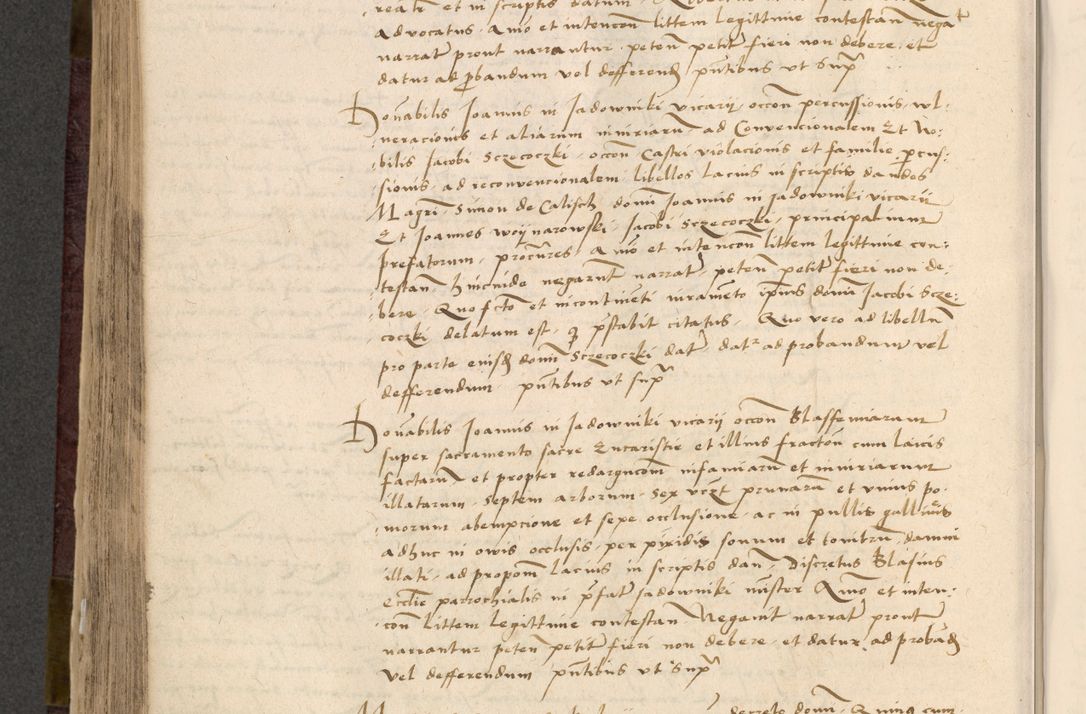 advocatus Animo et intencion littem legittime contestan nega
narrat pront narrantur peten petit fieri non debere et
datur ad probandum vel defferend pntibus vt supra
Honabilis Joannis in Jadowniki vicarij occon percussionis wl
neracionis et aliarum iniuriarum ad Convencionalem Et No
bilis Jacobi Szczecoczki occon Castri violacionis et familie percus
sionis ad reconvencionalem libellos Lacius in scriptis dandos
Magri Simon de Calisch domi Joannis in Jadowniki vicarij
Et Joannes Woynarowski Jacobi Szczecoczki principalium
prefatorum procures Animo et intencon littem legittime con
testan hincinde negarunt narrat peten petit fieri non de
bere Quo fcto et incontinenti iuramento ipsius domi Jacobi Szcze
coczki delatum est q pstabit citatus Quo vero ad libellum
pro parte eiusd domi Szczecoczki dat datr ad probandum vel
defferendum pntibus vt supra
Honabilis Joannis in Jadowniki vicarij occon Blasfemiarum
super sacramento sacre Eucaristie et illius fraction cum laicis
factarum et propter redargucom infamiarum et iniuriarum
illatarum septem arborum sex vczt prunarum et vnius po
morum abempcione et sepe occlusione ac in pullis gallinis
adhuc in owis occlusis per piridis sonum et tonitru damni
illati ad propom Lacius in scriptis dan Discretus Blasius
Ecclie parrochialis in pfat Jadowniki mister Animo et inten
con littem legittime contestan Negavit narrat pront
narrantur peten petit fieri non debere et datur ad proband
vel defferendum pntibus vt supra